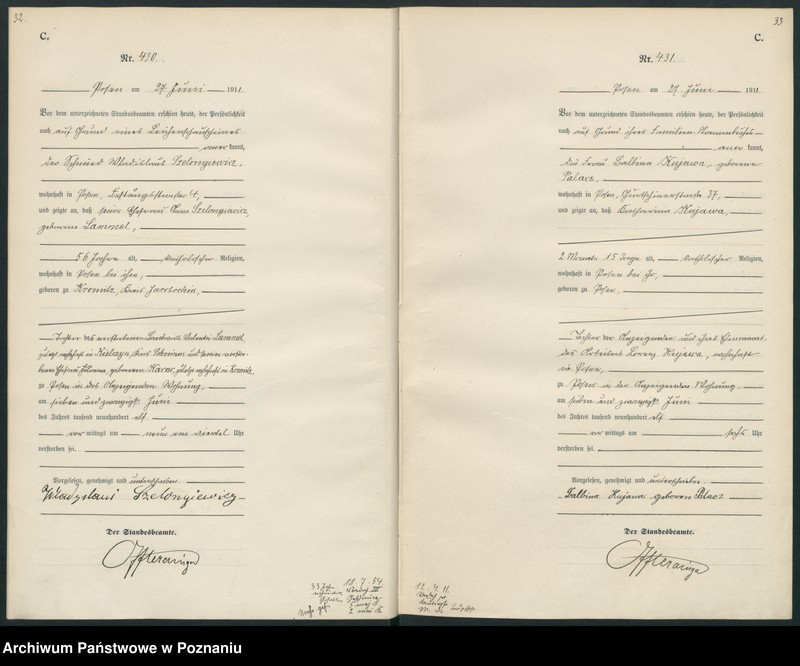 32
C.
Nr. 430.
Posen am 27. Juni 1911
Vor dem unterzeichneten Standesbeamten erschien heute, der Persönlichkeit
nach auf Grund eines Leichenschauscheines
aner kannt,
der Schmied Wladislaus Szelongiewicz,
wohnhaft in Posen, 4,
und zeigte an, daß seine Ehefrau Szelongiewicz,
geborene Lammel,
56 Jahre alt, katholischer Religion,
wohnhaft in Posen bei ihm,
geboren zu Kromitz, Kreis Jarotschin,
Tochter des verstorbenen Valentin Lammel,
zuletzt wohnhaft in Kreis und seiner verstor-
benen Ehefrau geborenen zuletzt wohnhaft in Kromitz,
zu Posen in des Anzeigenden Wohnung,
am sieben und zwanzigsten Juni
des Jahres tausend neunhundert elf
vor mittags um neun ein viertel Uhr
verstorben sei.
Vorgelesen, genehmigt und unterschrieben.
Władysłaus Szelongiewicz
Der Standesbeamte.
18. 7. 54
33
C.
Nr. 431.
Posen am 27. Juni 1911
Vor dem unterzeichneten Standesbeamten erschien heute, der Persönlichkeit
nach auf Grund ihres Familien-Stammbuches
aner kannt,
die Frau Balbina Kujawa, geborene
Palacz,
wohnhaft in Posen, 37,
und zeigte an, daß Katharina Kujawa,
2 Monate 15 Tage alt, katholischer Religion,
wohnhaft in Posen bei ihr,
geboren zu Posen,
Tochter der Anzeigenden und ihres Ehemannes
des Arbeiters Lorenz Kujawa, wohnhaft
in Posen,
zu Posen in der Anzeigenden Wohnung
am sieben und zwanzigsten Juni
des Jahres tausend neunhundert elf
vor mittags um sechs Uhr
verstorben sei.
Vorgelesen, genehmigt und unterschrieben.
Balbina Kujawa geboren Palacz
Der Standesbeamte.
Archiwum Państwowe w Poznaniu